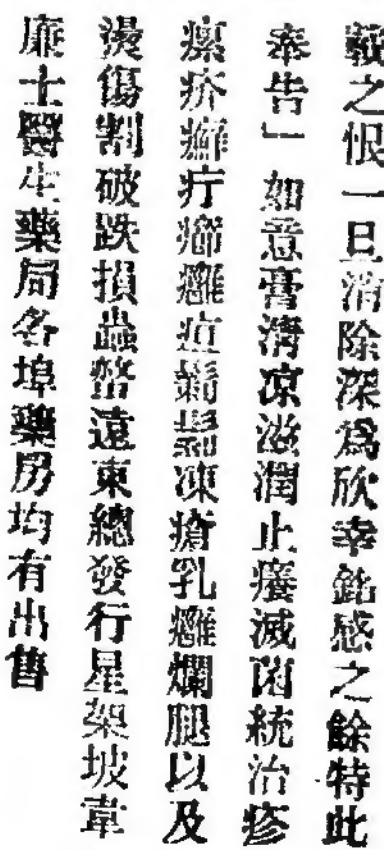 載之恨一旦消除深爲欣幸銘感之餘特此
奉告」如意膏淸凉滋潤止癢滅菌統治疹
瘰疥癬疔癤癰疽鬁鬁凍瘡乳癰爛腿以及
燙傷割破跌損蟲螫遠東總發行星架坡韋
廉士醫生藥局各埠藥房均有出售